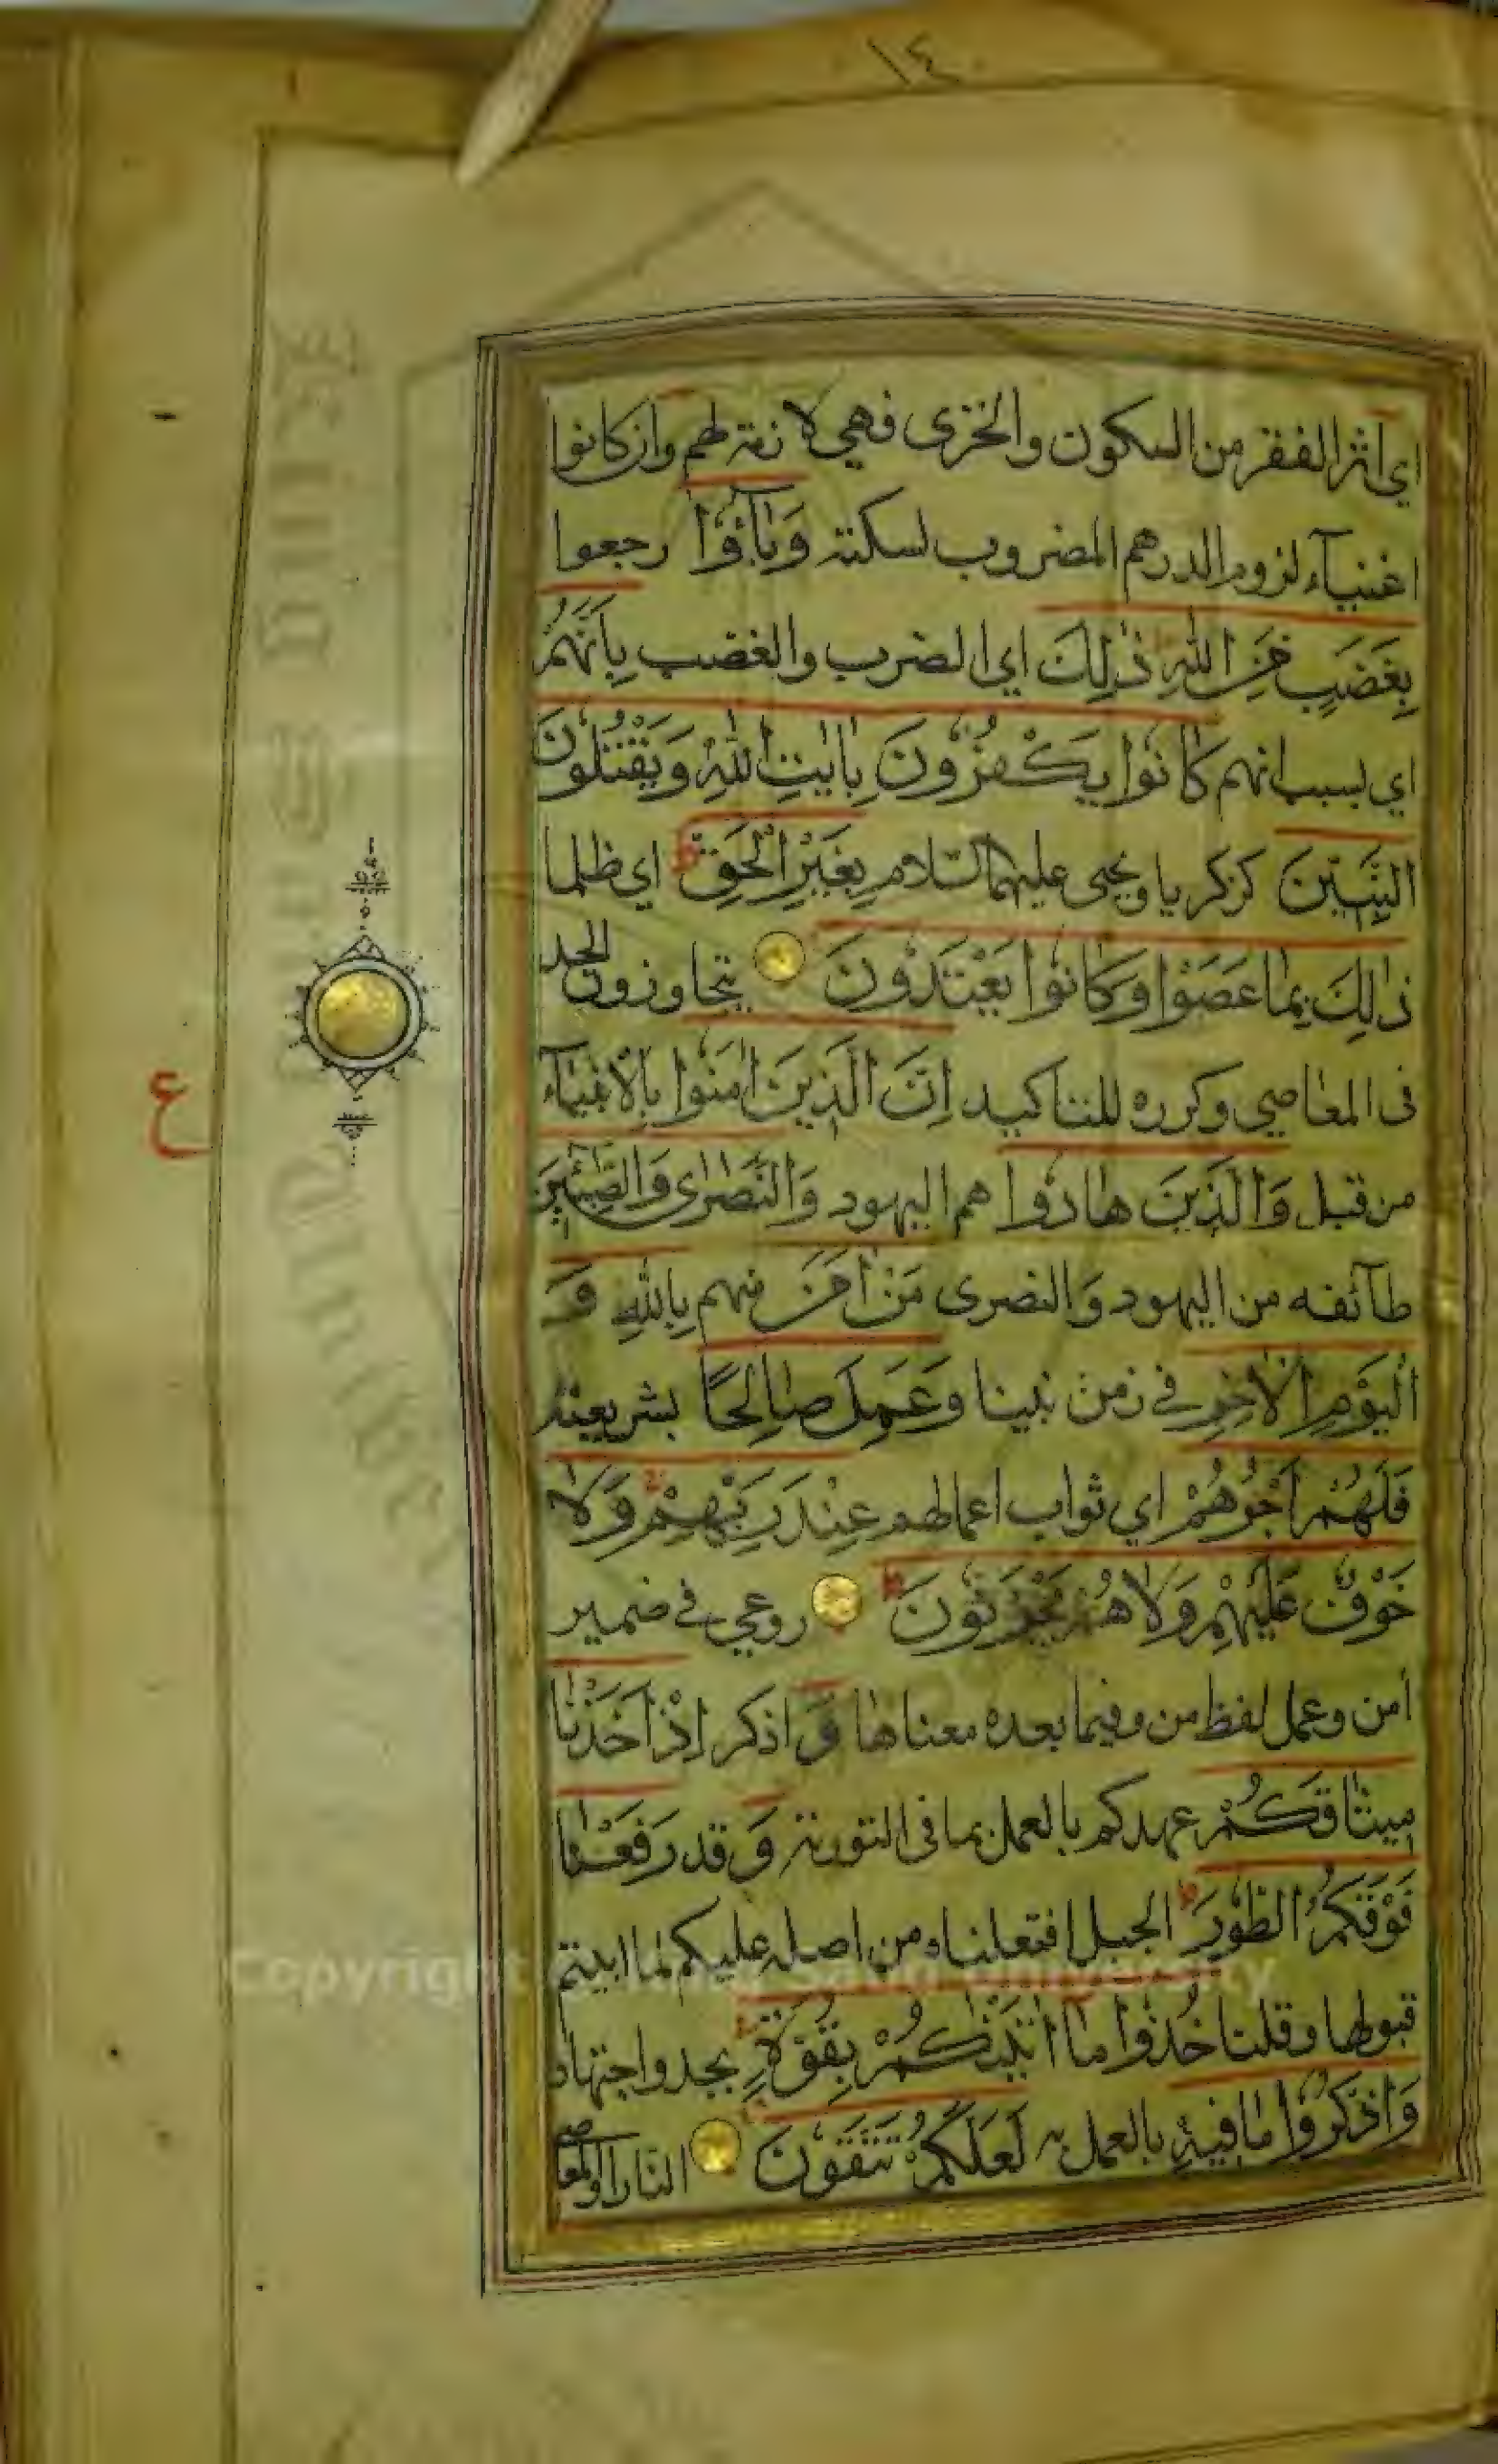 ١٤
اي اثر الفقر من السكون والخزى فهي لازمة لهم وان كانوا
اغنيآء لزوم الدرهم المضروب لسكته وَبَآؤُا رجعوا
بِغَضَبٍ مِنَ اللهِ ذٰلِكَ اي الضرب والغضب بِاَنَّهُمْ
اي بسبب انهم كَانُوا يَكْفُرُونَ بِاٰيٰتِ اللهِ وَيَقْتُلُونَ
النَّبِيّٖنَ كزكريا ويحيى عليهما السّلام بِغَيْرِ الْحَقِّ اي ظلما
ذٰلِكَ بِمَا عَصَوْا وَكَانُوا يَعْتَدُونَ يتجاوزون الحد
فى المعاصي وكرره للتاكيد اِنَّ الَّذِينَ اٰمَنُوا بالانبيآء
من قبل وَالَّذِينَ هَادُوا هم اليهود وَالنَّصَارٰى وَالصَّابِئِينَ
طآئفه من اليهود وَالنصرى مَنْ اٰمَنَ منهم بِاللهِ وَ
الْيَوْمِ الْاٰخِرِ في زمن نبينا وَعَمِلَ صَالِحًا بشريعته
فَلَهُمْ اَجْرُهُمْ اي ثواب اعمالهم عِنْدَ رَبِّهِمْ وَلَا
خَوْفٌ عَلَيْهِمْ وَلَا هُمْ يَحْزَنُونَ روعي في ضمير
أمن وعمل لفظ من وفيما بعده معناها وَ اذكر اِذْ اَخَذْنَا
مِيثَاقَكُمْ عهدكم بالعمل بما فى التورية وَ قد رَفَعْنَا
فَوْقَكُمُ الطُّورَ الجبل اقتعلناه من اصله عليكم لما ابيتم
قبولها وقلنا خُذُوا مَا اٰتَيْنَاكُمْ بِقُوَّةٍ بجد واجتهاد
وَاذْكُرُوا مَا فِيهِ بالعمل به لَعَلَّكُمْ تَتَّقُونَ النار او المعاصي
ع
Copyright © King Saud University